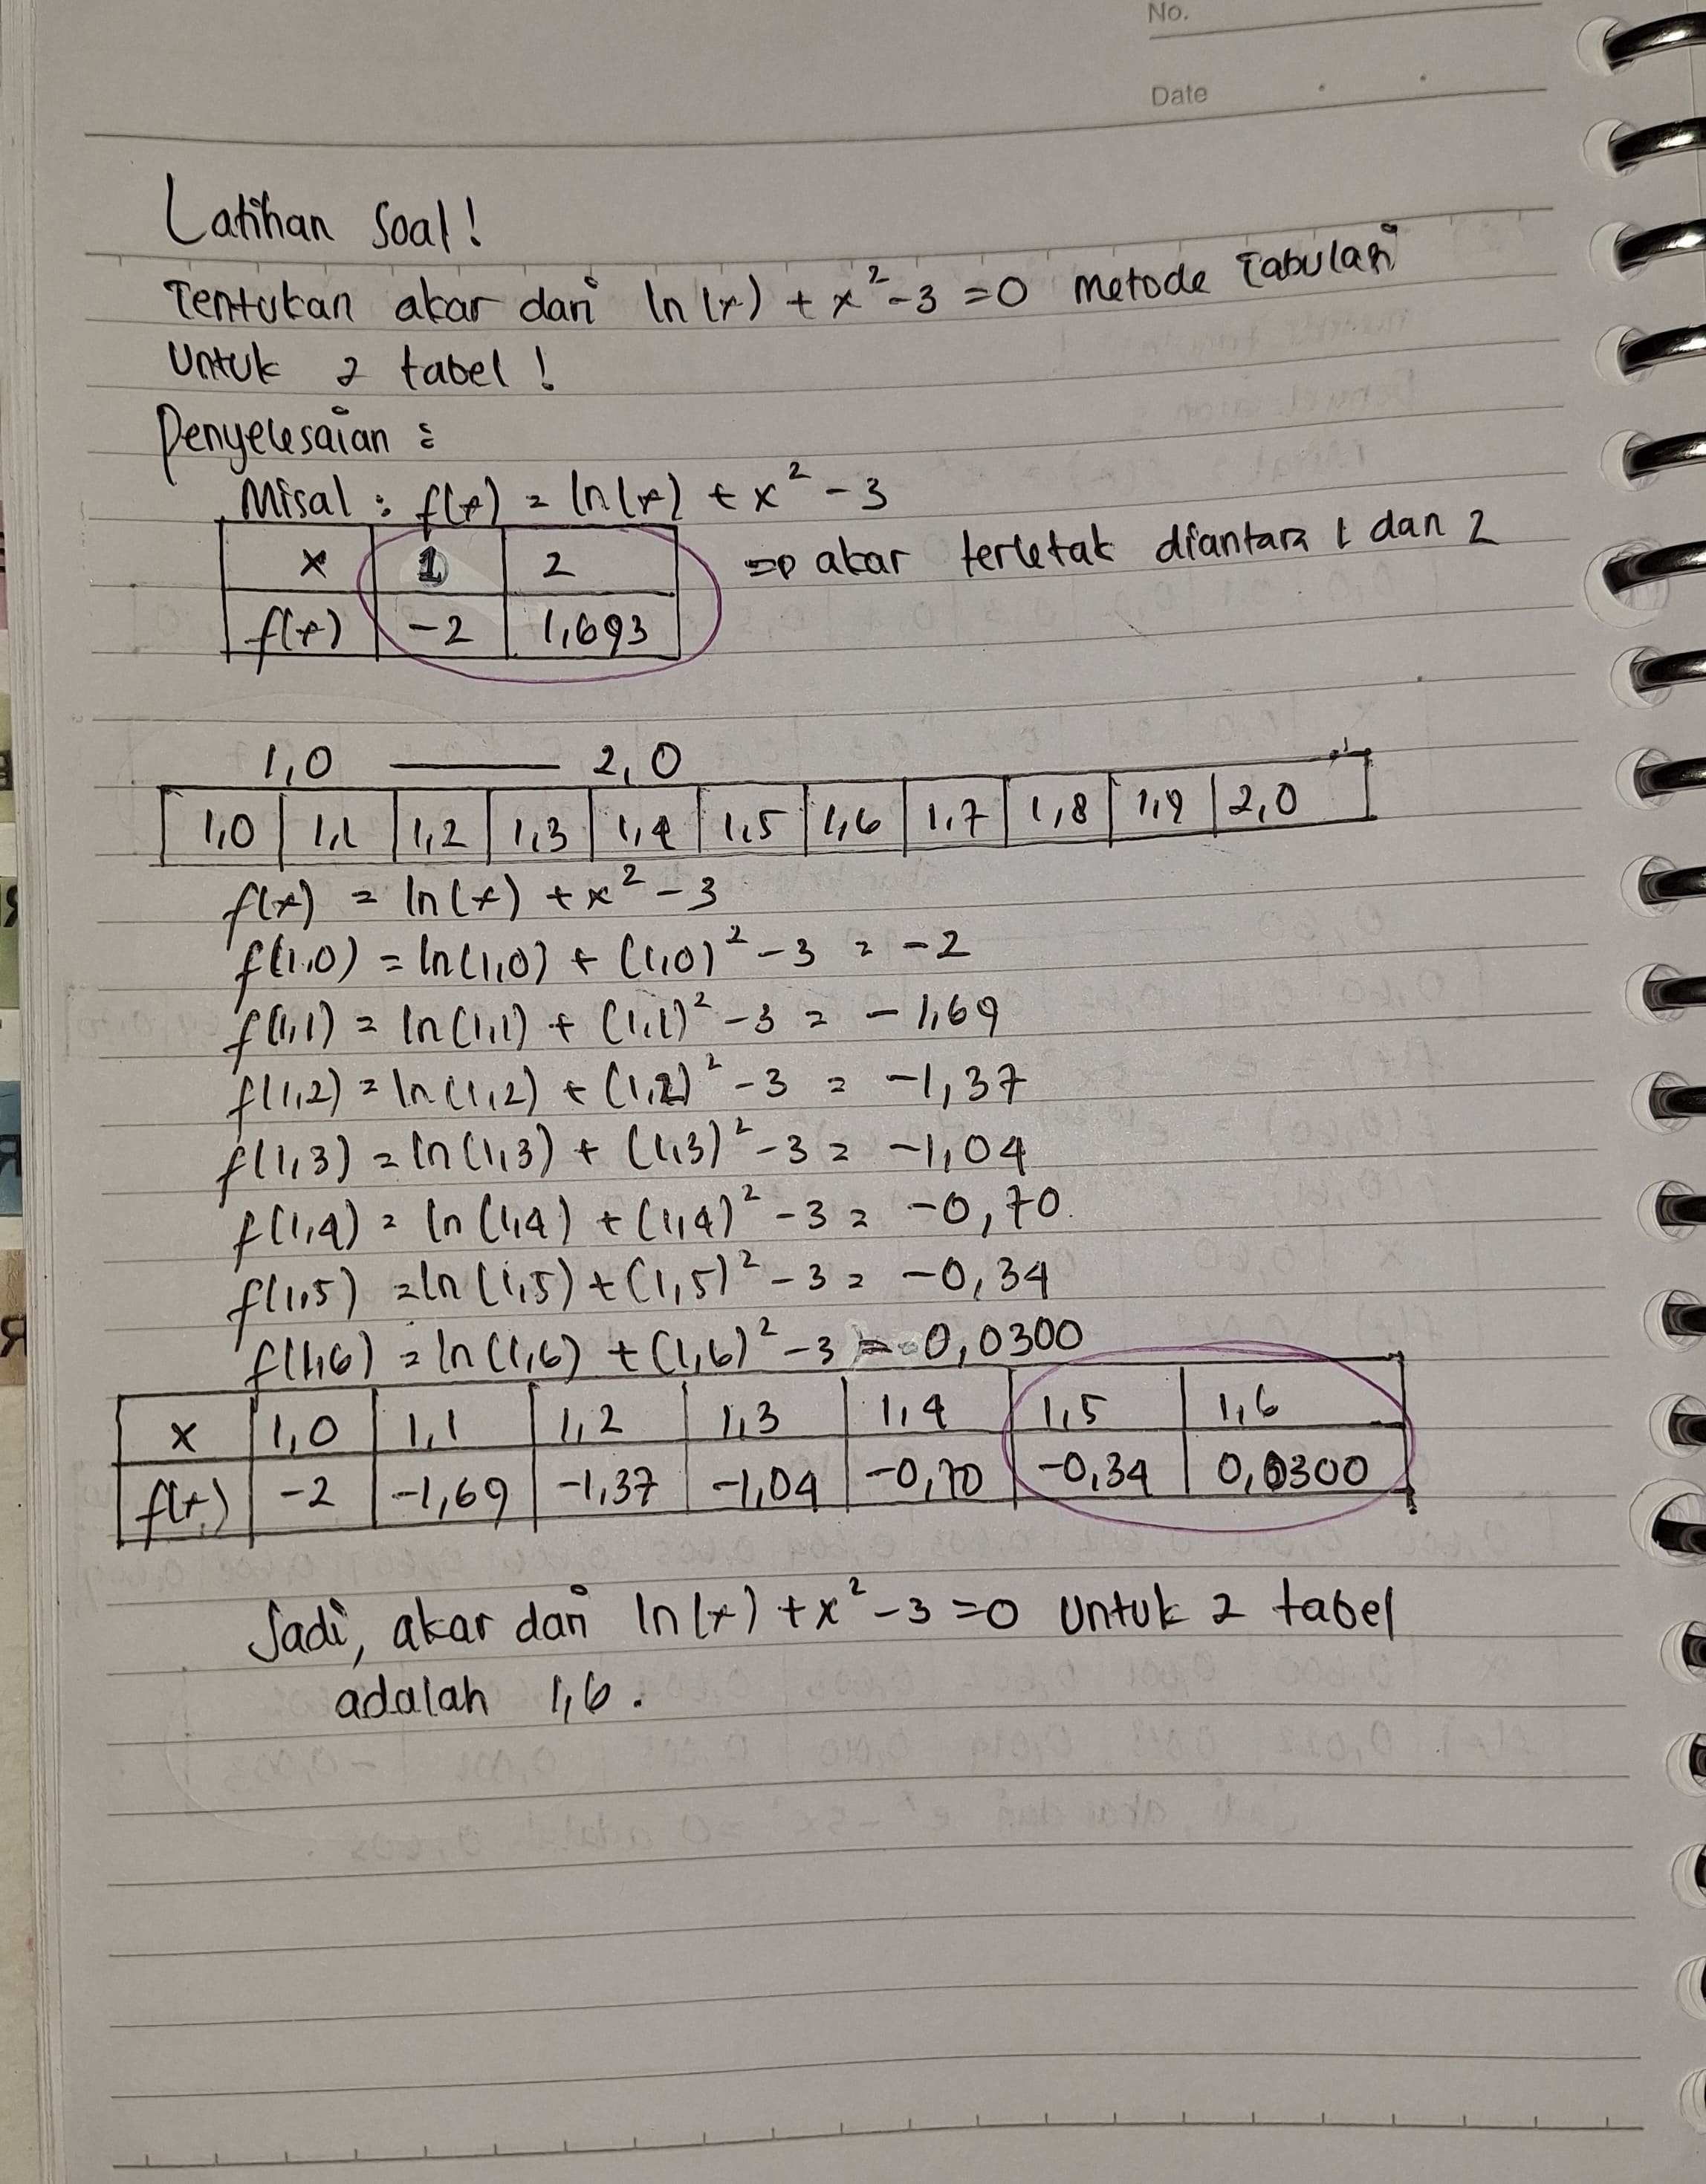 No.
Date
Latihan Soal!
Tentukan akar dari ln(x) + x² - 3 = 0 metode Tabulasi
Untuk 2 tabel!
Penyelesaian :
Misal : f(x) = ln(x) + x² - 3
x 1 2 => akar terletak diantara 1 dan 2
f(x) -2 1,693
1,0 —— 2,0
1,0 1,1 1,2 1,3 1,4 1,5 1,6 1,7 1,8 1,9 2,0
f(x) = ln(x) + x² - 3
f(1,0) = ln(1,0) + (1,0)² - 3 = -2
f(1,1) = ln(1,1) + (1,1)² - 3 = -1,69
f(1,2) = ln(1,2) + (1,2)² - 3 = -1,37
f(1,3) = ln(1,3) + (1,3)² - 3 = -1,04
f(1,4) = ln(1,4) + (1,4)² - 3 = -0,70
f(1,5) = ln(1,5) + (1,5)² - 3 = -0,34
f(1,6) = ln(1,6) + (1,6)² - 3 = 0,0300
x 1,0 1,1 1,2 1,3 1,4 1,5 1,6
f(x) -2 -1,69 -1,37 -1,04 -0,70 -0,34 0,0300
Jadi, akar dari ln(x) + x² - 3 = 0 Untuk 2 tabel
adalah 1,6.